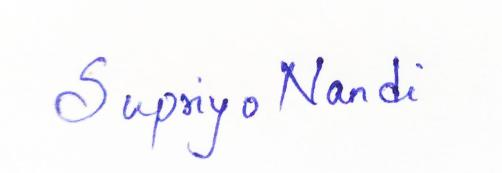 Supriyo Nandi